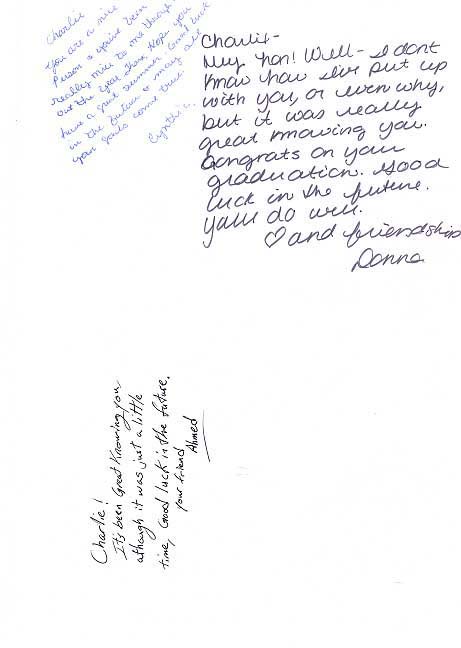 Charlie
You are a nice
Person & you've been
really nice to me through
out the year. Hope you
have a great summer. Good luck
in the future & may all
your goals come true.
Cynthia.
Charlie-
Hey Hon! Well - I dont
know how I've put up
with you, or even why,
but it was really
great knowing you.
Congrats on your
graduation. Good
luck in the future.
You'll do well.
♡ and friendship
Donna
Charlie!
It's been Great Knowing you
although it was just a little
time, Good luck in the future.
your friend
Ahmed